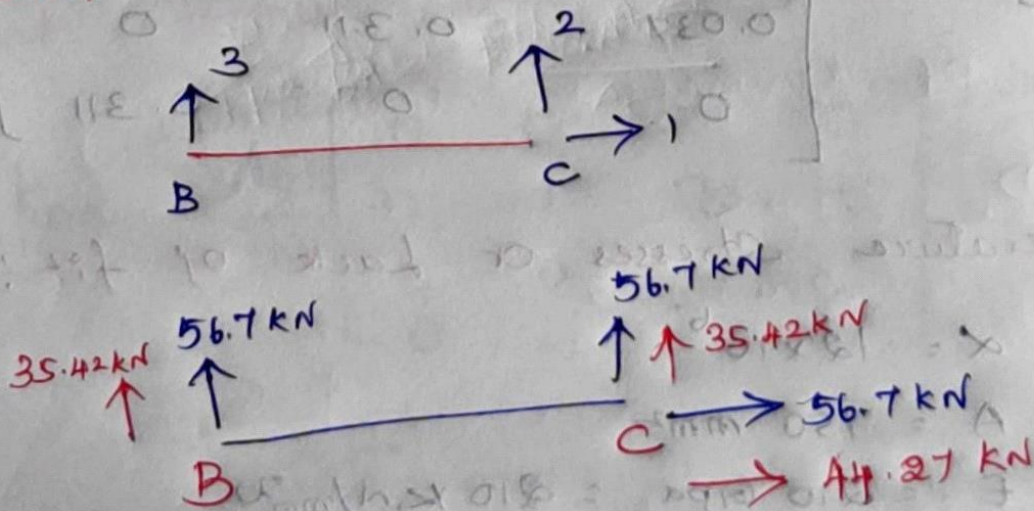 3
2
1
B
C
56.7 kN
56.7 kN
35.42 kN
35.42 kN
56.7 kN
B
C
44.27 kN